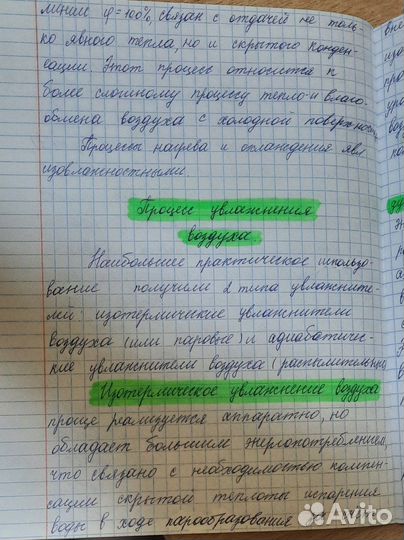 линии φ=100%, связан с отдачей не толь
ко явного тепла, но и скрытого конден
сации. Этот процесс относится к
более сложному процессу тепло- и влаго
обмена воздуха с холодной поверхностью
Процессы нагрева и охлаждения явл
изовлажностными.
Процесс увлажнения
воздуха.
Наибольшее практическое использо
вание получили 2 типа увлажните
лей: изотермические увлажнители
воздуха (или паровые) и адиабатичес
кие увлажнители воздуха (распылительные)
Изотермическое увлажнение воздуха
проще реализуется аппаратно, но
обладает большим энергопотреблением
что связано с необходимостью компен
сации скрытой теплоты испарения
воды в ходе парообразования
Avito